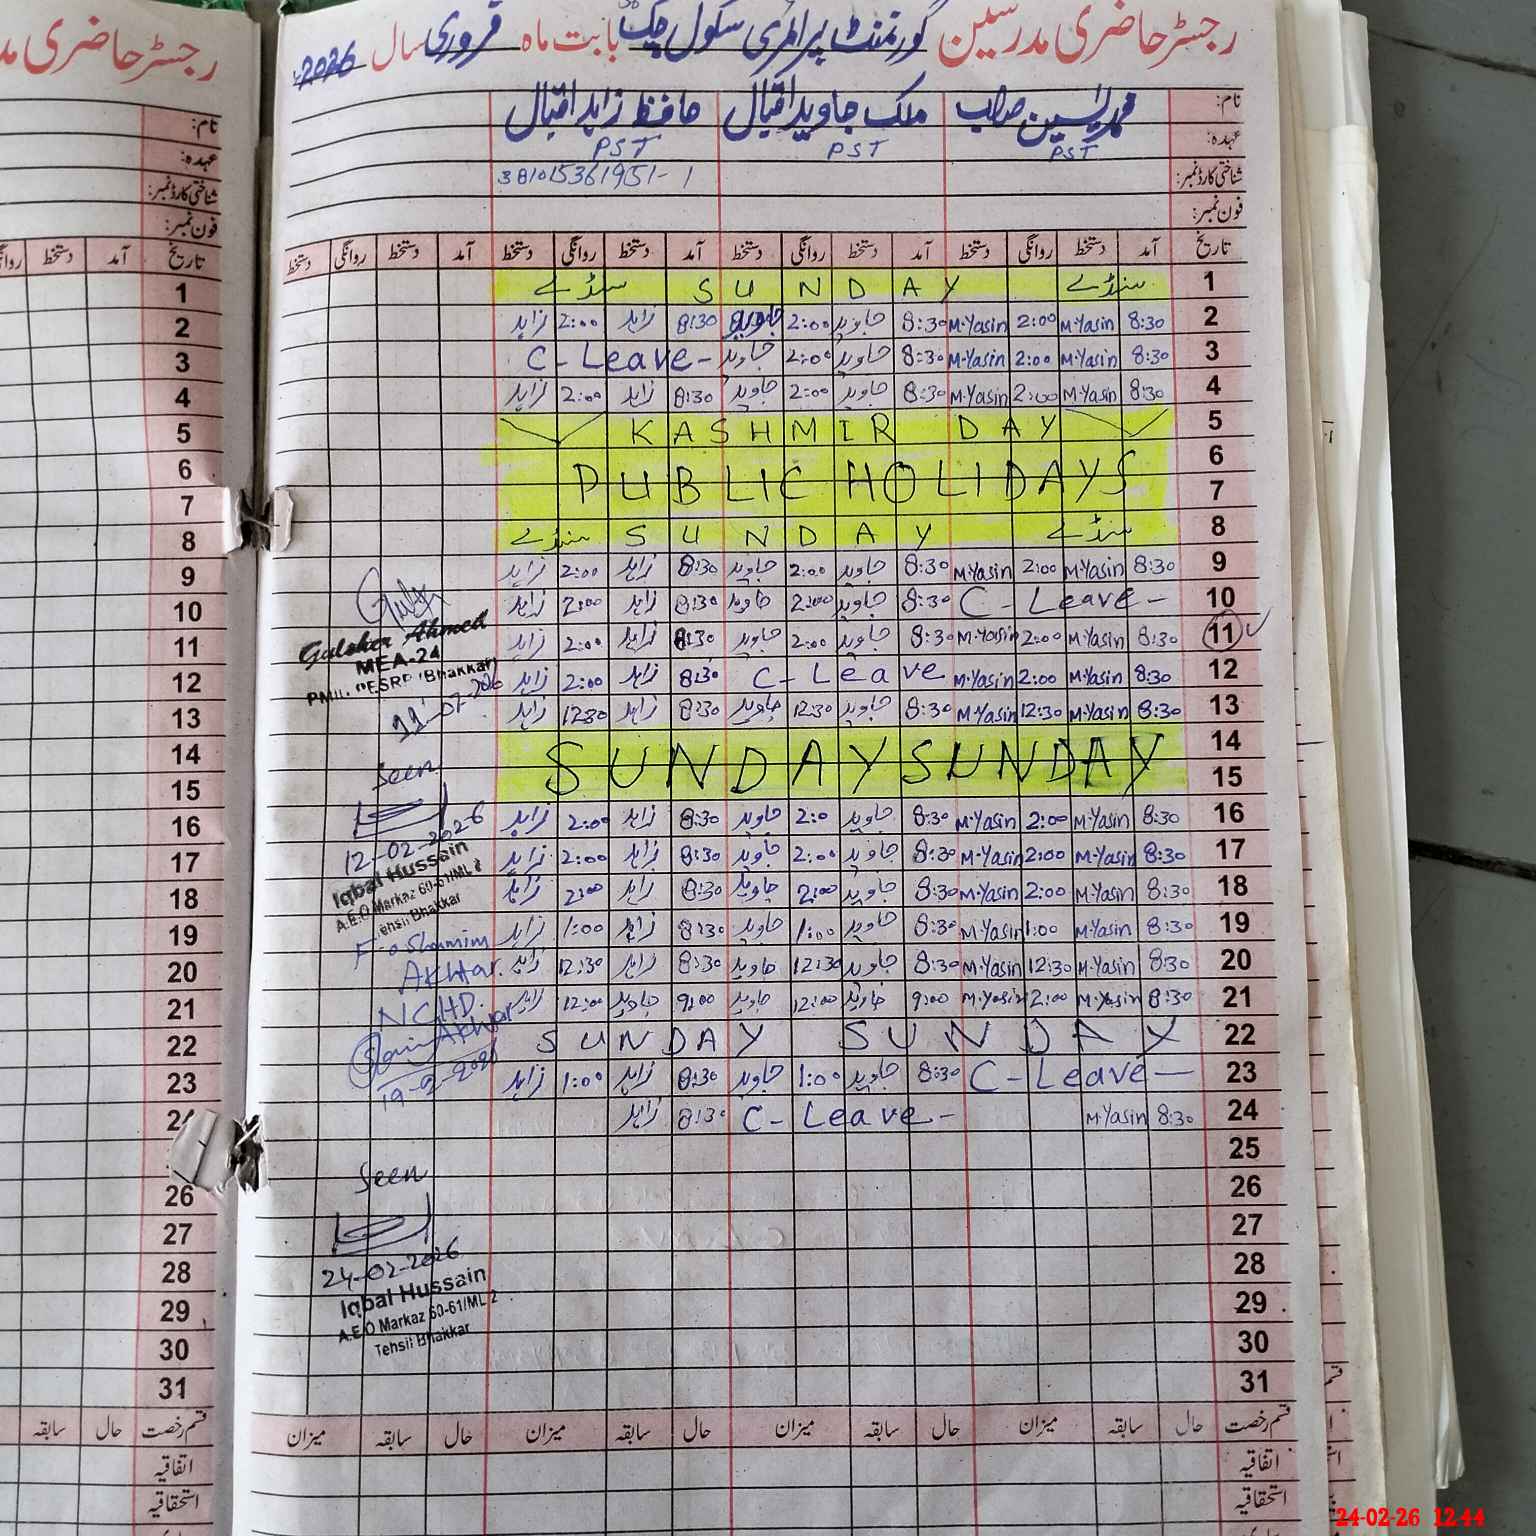 رجسٹر حاضری مدرسین گورنمنٹ پرائمری سکول چک بابت ماہ فروری سال 2026
نام: محمد یٰسین صاحب ملک جاوید اقبال حافظ زاہد اقبال
عہدہ: PST PST PST
شناختی کارڈ نمبر: 381015361951-1
فون نمبر:
تاریخ آمد دستخط روانگی دستخط آمد دستخط روانگی دستخط آمد دستخط روانگی دستخط آمد دستخط روانگی دستخط
1 سنڈے SUNDAY سنڈے
2 8:30 M.Yasin 2:00 M.Yasin 8:30 جاوید 2:00 جاوید 8:30 زاہد 2:00 زاہد
3 8:30 M.Yasin 2:00 M.Yasin 8:30 جاوید 2:00 جاوید C-Leave-
4 8:30 M.Yasin 2:00 M.Yasin 8:30 جاوید 2:00 جاوید 8:30 زاہد 2:00 زاہد
5 KASHMIR DAY
6
7 PUBLIC HOLIDAYS
8 سنڈے SUNDAY سنڈے
9 8:30 M.Yasin 2:00 M.Yasin 8:30 جاوید 2:00 جاوید 8:30 زاہد 2:00 زاہد
10 C-Leave- 8:30 جاوید 2:00 جاوید 8:30 زاہد 2:00 زاہد
11 8:30 M.Yasin 2:00 M.Yasin 8:30 جاوید 2:00 جاوید 8:30 زاہد 2:00 زاہد
12 8:30 M.Yasin 2:00 M.Yasin C-Leave 8:30 زاہد 2:00 زاہد
13 8:30 M.Yasin 12:30 M.Yasin 8:30 جاوید 12:30 جاوید 8:30 زاہد 12:30 زاہد
14
15 SUNDAY SUNDAY
16 8:30 M.Yasin 2:00 M.Yasin 8:30 جاوید 2:0 جاوید 8:30 زاہد 2:00 زاہد
17 8:30 M.Yasin 2:00 M.Yasin 8:30 جاوید 2:00 جاوید 8:30 زاہد 2:00 زاہد
18 8:30 M.Yasin 2:00 M.Yasin 8:30 جاوید 2:00 جاوید 8:30 زاہد 2:00 زاہد
19 8:30 M.Yasin 1:00 M.Yasin 8:30 جاوید 1:00 جاوید 8:30 زاہد 1:00 زاہد
20 8:30 M.Yasin 12:30 M.Yasin 8:30 جاوید 12:30 جاوید 8:30 زاہد 12:30 زاہد
21 8:30 M.Yasin 2:00 M.Yasin 9:00 جاوید 12:00 جاوید 9:00 جاوید 12:00 زاہد
22 SUNDAY SUNDAY
23 C-Leave- 8:30 جاوید 1:00 جاوید 8:30 زاہد 1:00 زاہد
24 8:30 M.Yasin C-Leave- 8:30 زاہد
25
26
27
28
29
30
31
قسم رخصت حال سابقہ میزان حال سابقہ میزان حال سابقہ میزان حال سابقہ میزان
اتفاقیہ
استحقاقیہ
Gulsher Ahmed
MEA-24
(Bhakkar)
Seen
12-02-2026
Iqbal Hussain
A.E.O Markaz 60-61/ML 2
Tehsil Bhakkar
Shamim
Akhtar
NCHD
19-2-2026
Seen
24-02-2026
Iqbal Hussain
A.E.O Markaz 60-61/ML 2
Tehsil Bhakkar
رجسٹر حاضری
نام:
عہدہ:
شناختی کارڈ نمبر:
فون نمبر:
تاریخ آمد دستخط
1
2
3
4
5
6
7
8
9
10
11
12
13
14
15
16
17
18
19
20
21
22
23
24
26
27
28
29
30
31
قسم رخصت حال سابقہ
اتفاقیہ
استحقاقیہ
24-02-26 12:44